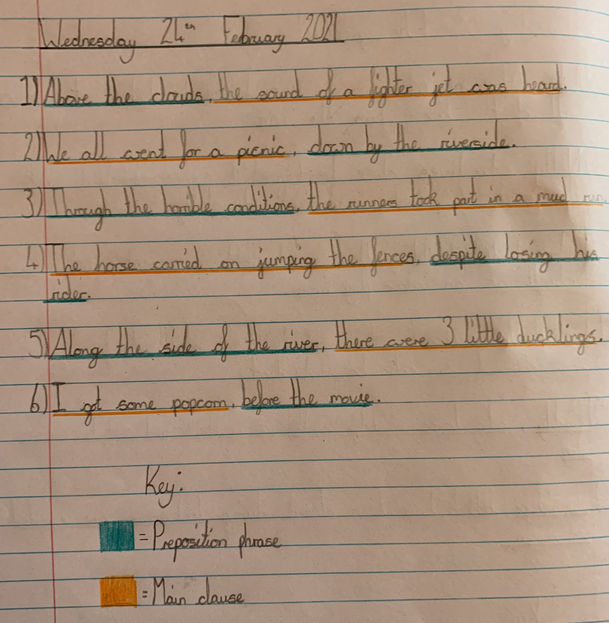 Wednesday 24th February 2021
1) Above the clouds, the sound of a fighter jet was heard.
2) We all went for a picnic, down by the riverside.
3) Through the horrible conditions, the runners took part in a mud run
4) The horse carried on jumping the fences, despite losing his
rider.
5) Along the side of the river, there were 3 little ducklings.
6) I got some popcorn, before the movie.
Key:
= Preposition phrase
= Main clause